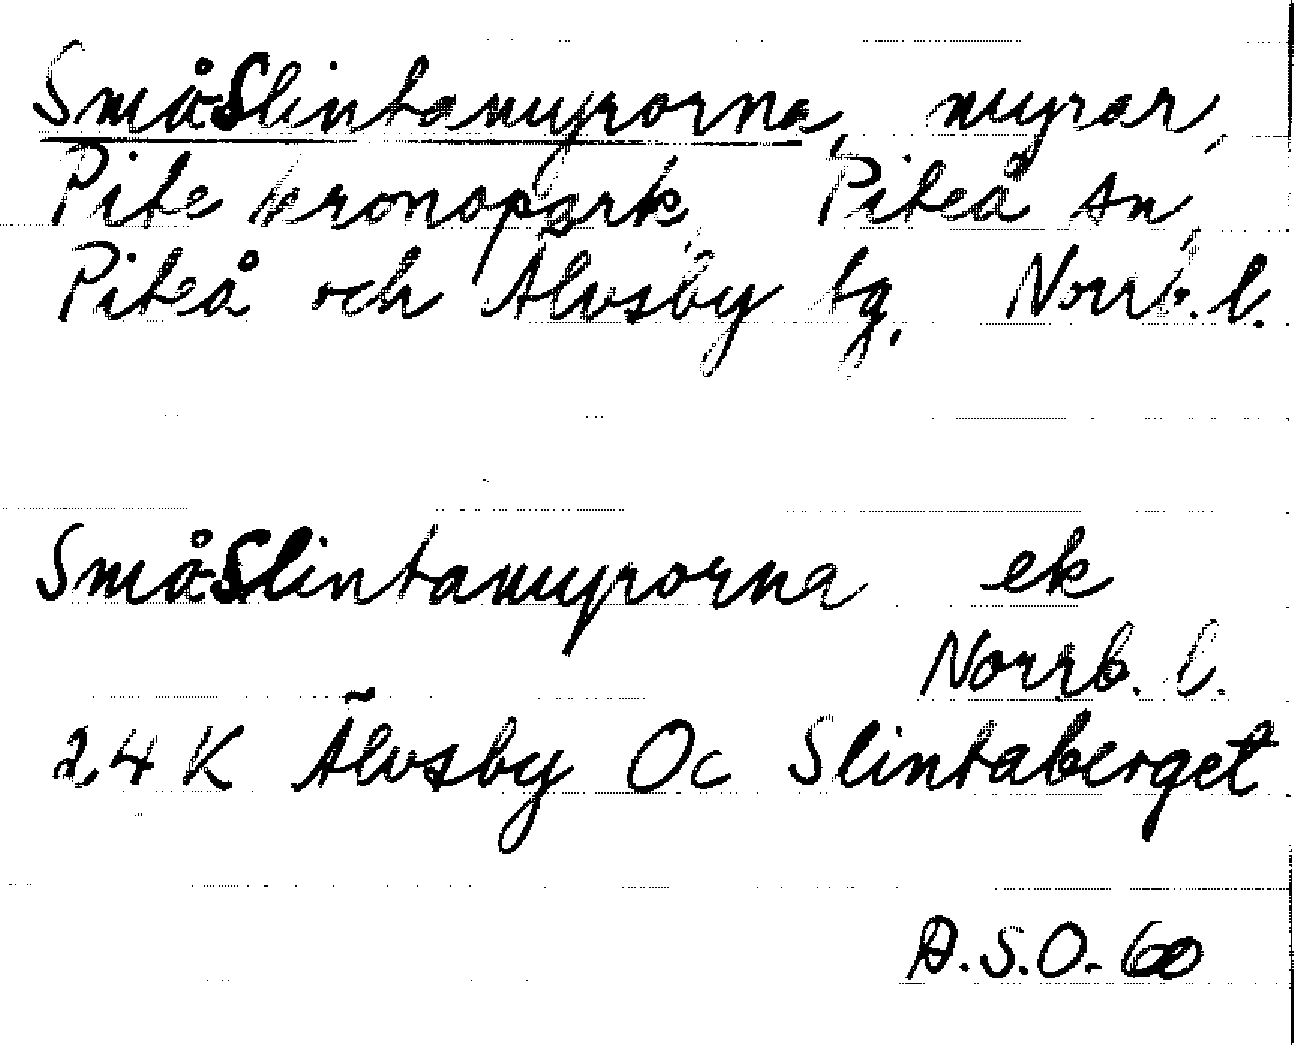 Små-Slintamyrorna, myrar,
Pite kronopark, Piteå sn,
Piteå och Älvsby tg, Norrb. l.
Små-Slintamyrorna ek
Norrb. l.
24 K Älvsby Oc Slintaberget
D.S.O. 60